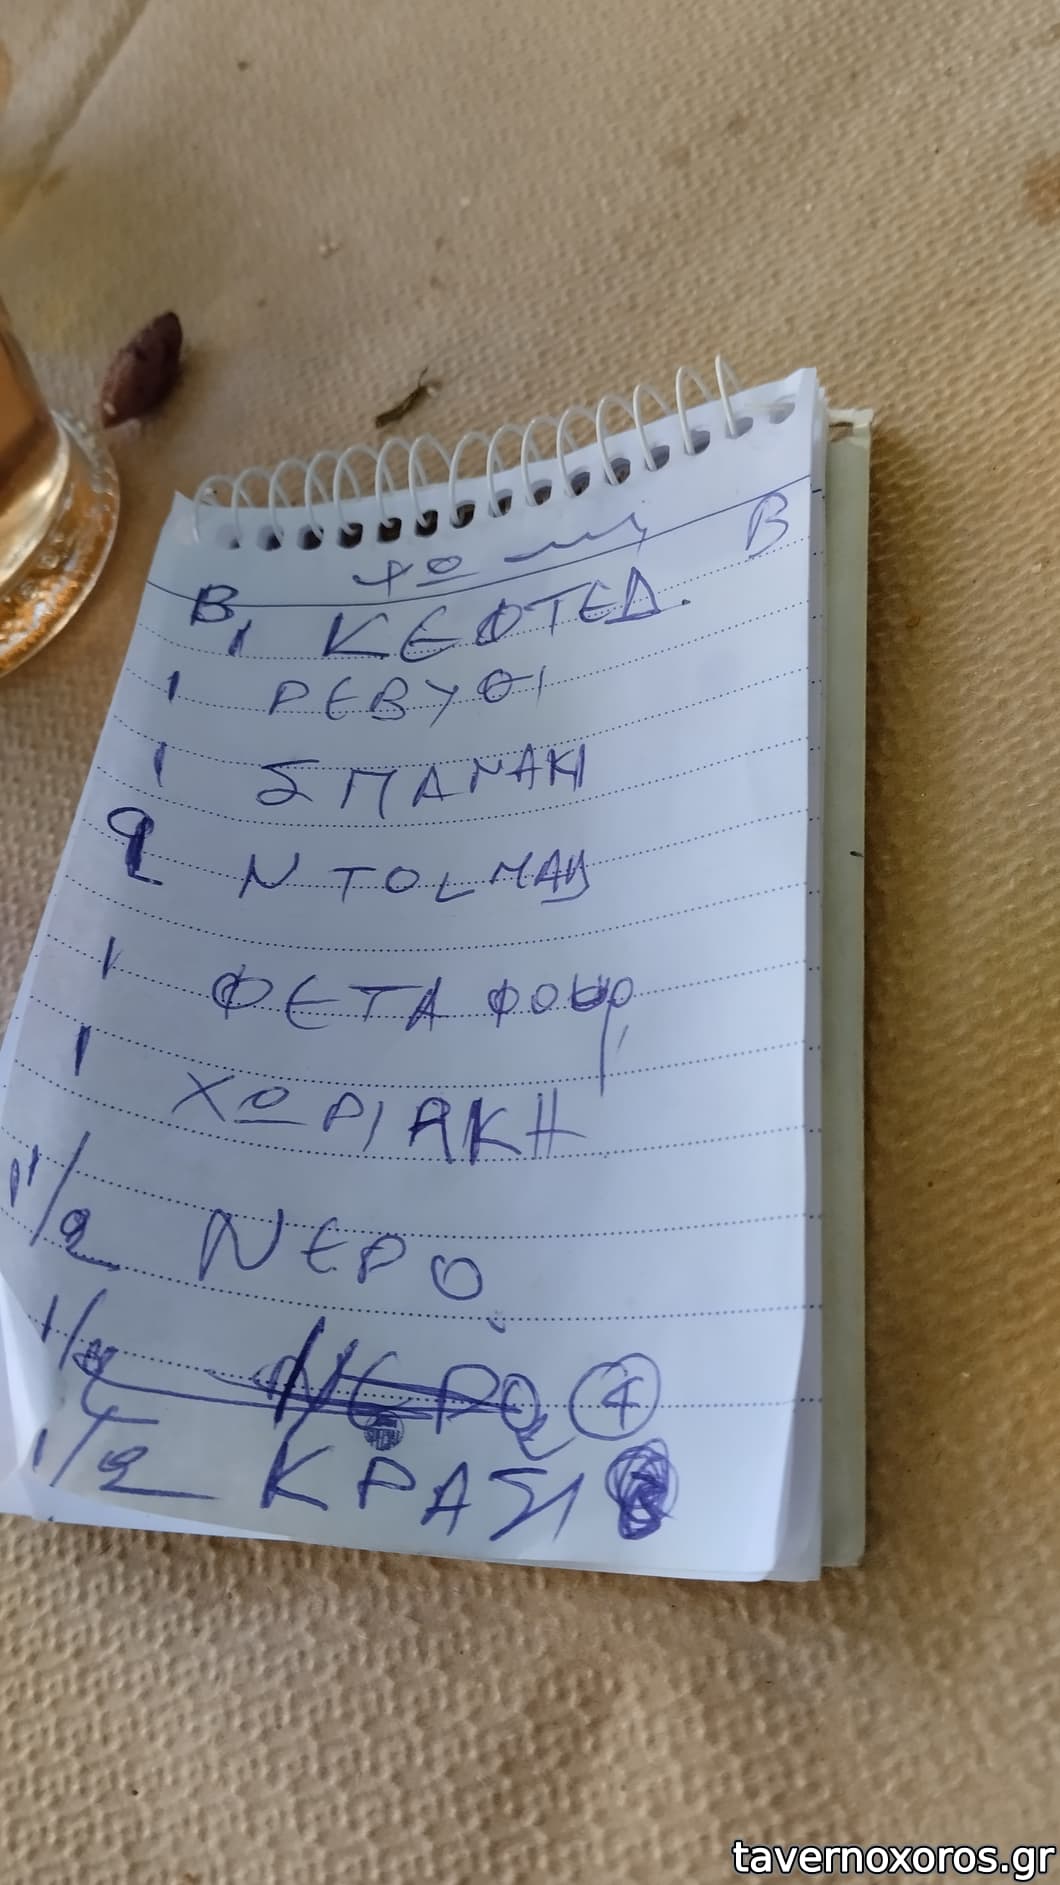 Β
Β
1 ΚΕΦΤΕΔ.
1 ΡΕΒΥΘΙ
1 ΣΠΑΝΑΚΙ
2 ΝΤΟLΜΑΔ
1 ΦΕΤΑ ΦΟΥΡ
1 ΧΩΡΙΑΚΗ
1 1/2 ΝΕΡΟ
ΝΕΡΟ 4
1/2 ΚΡΑΣΙ
tavernoxoros.gr